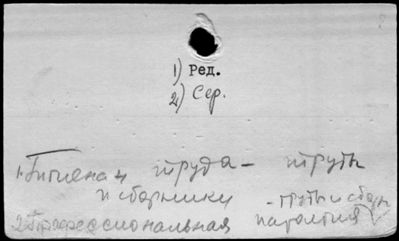 1) Ред.
2) Сер.
1. Гигиена труда – труды
и сборники – труды и сборн
2. Профессиональная патология